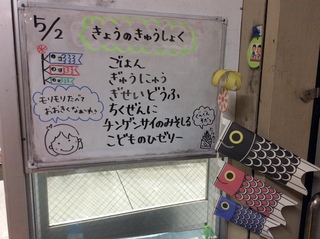 5/2
きょうのきゅうしょく
ごはん
ぎゅうにゅう
ぎせいどうふ
ちくぜんに
チンゲンサイのみそしる
こどものひゼリー
モリモリたべて
おおきくなぁれ